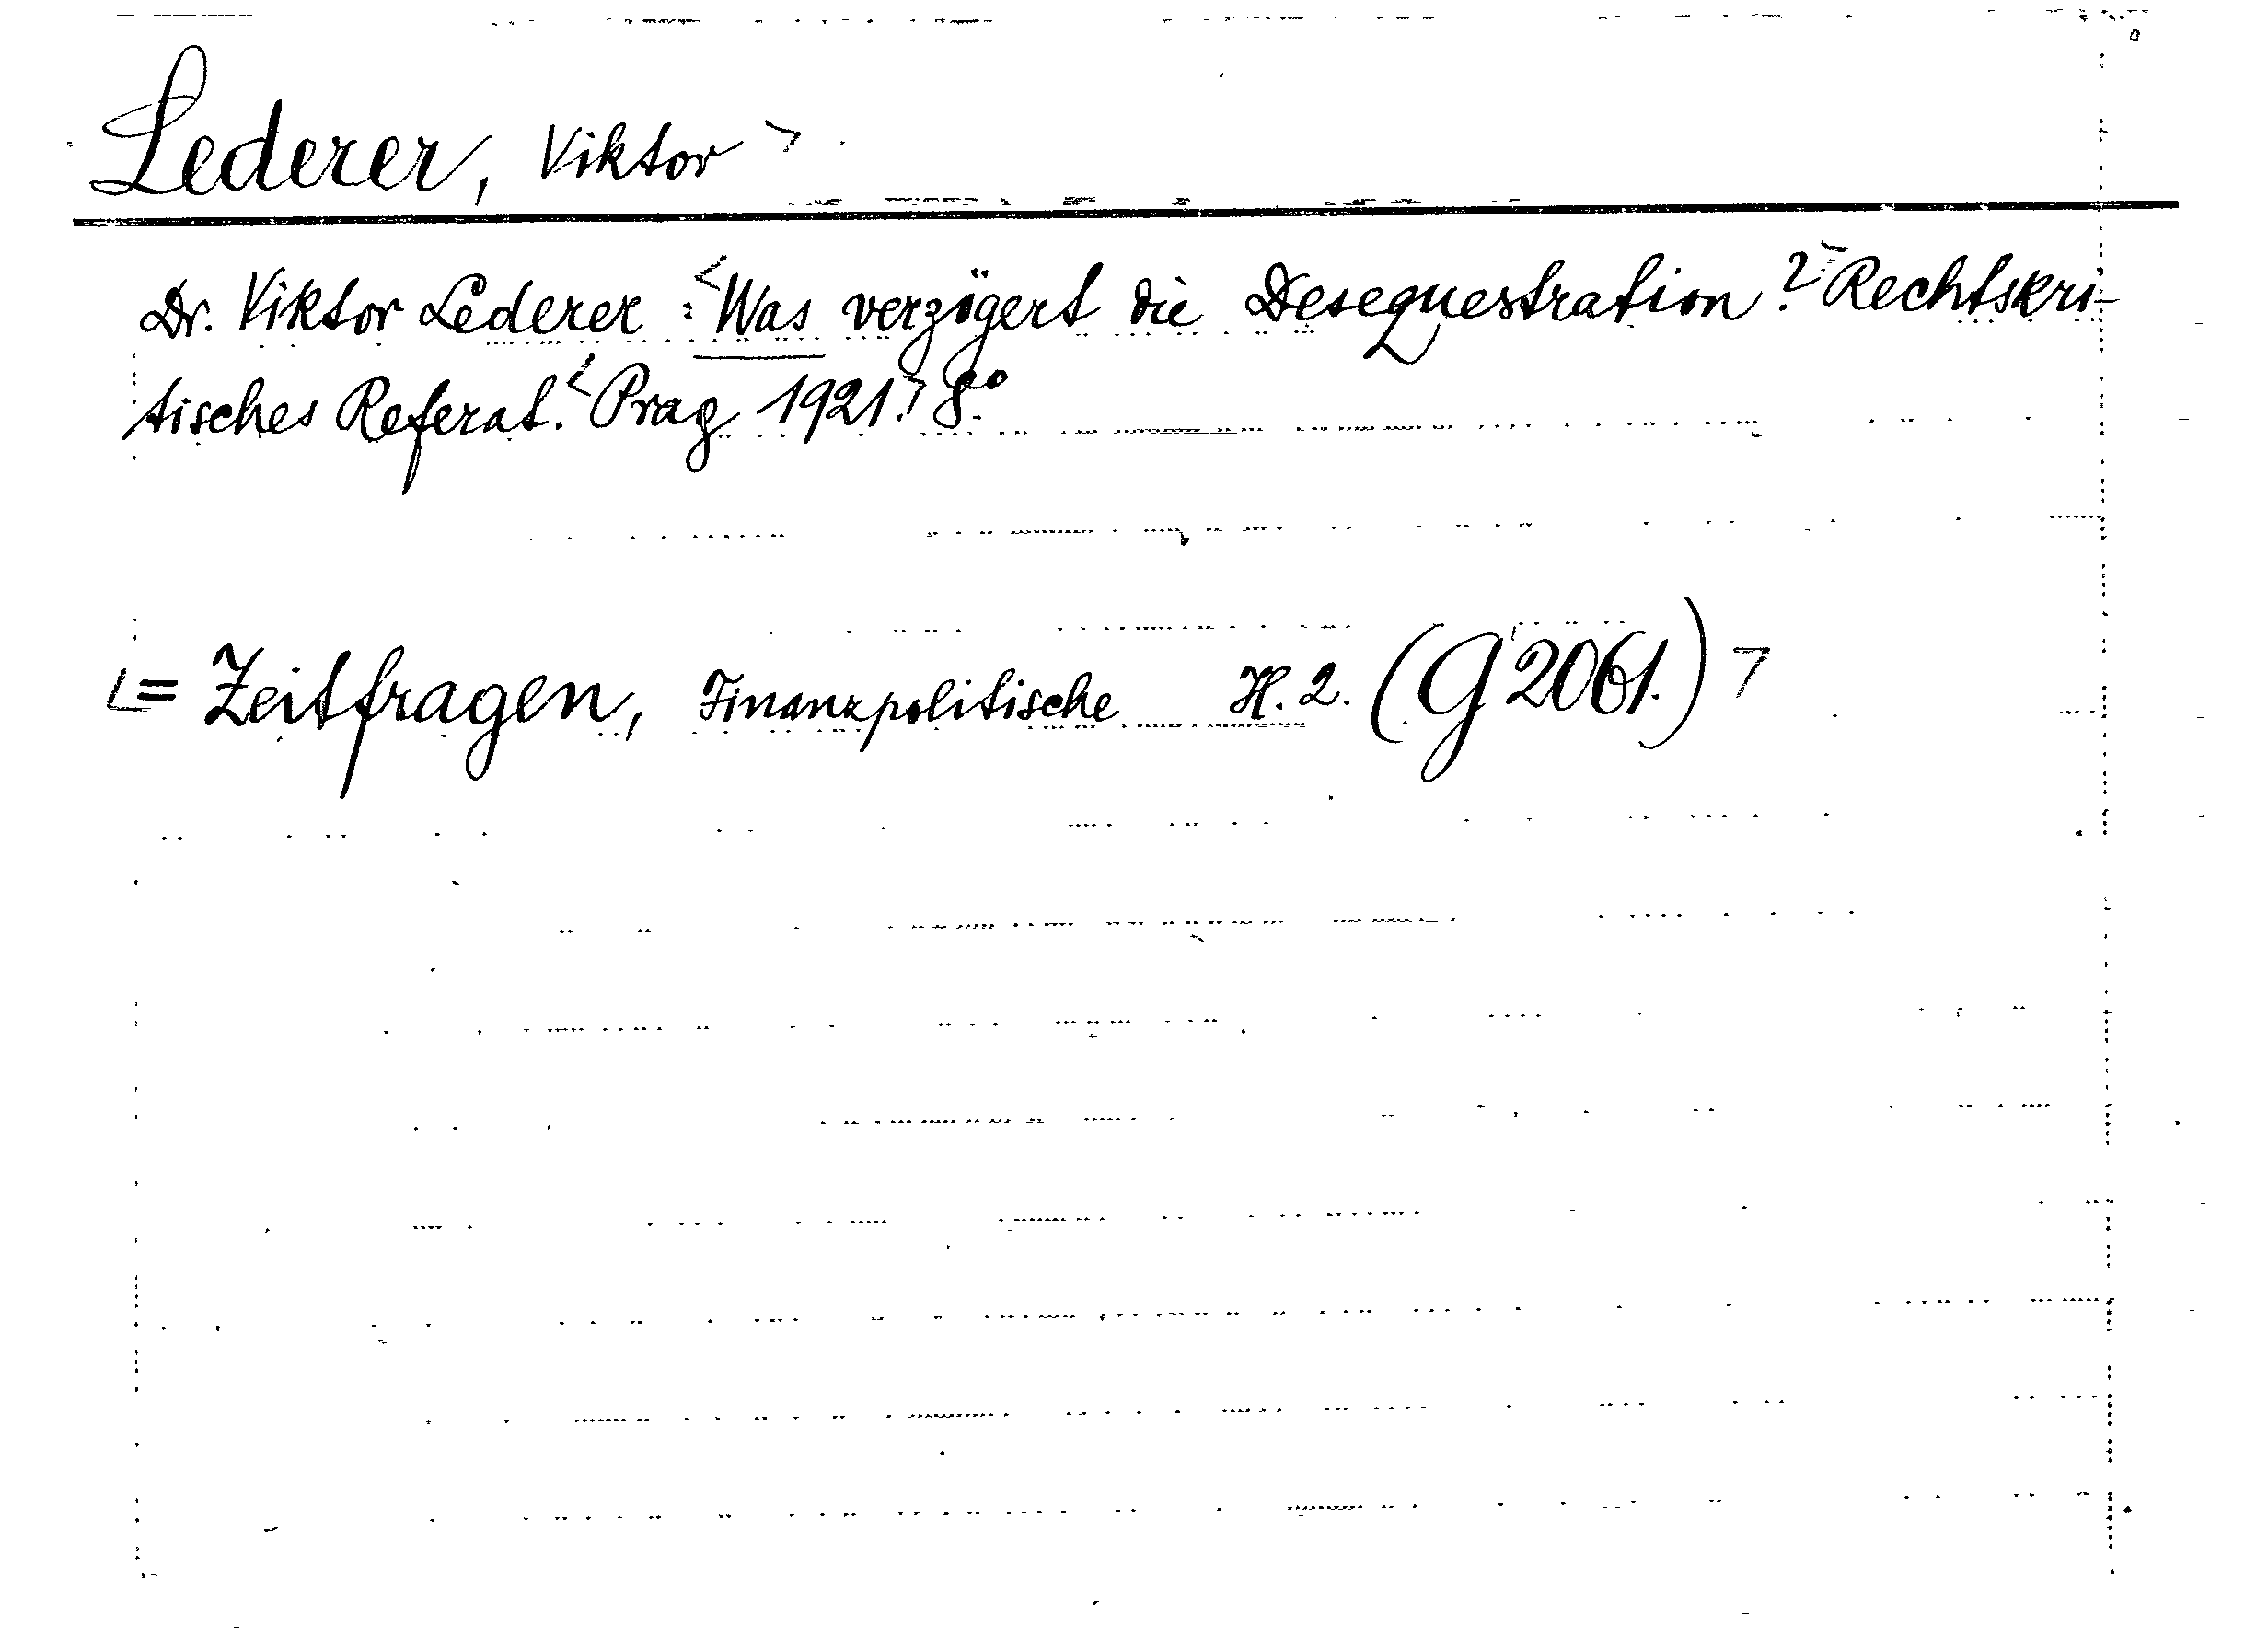 Lederer, Viktor >
Dr. Viktor Lederer : <Was verzögert die Desequestration ? > Rechtskri-
tisches Referat. < Prag 1921. > 8°.
<= Zeitfragen, Finanzpolitische H. 2. (G 2061.) >